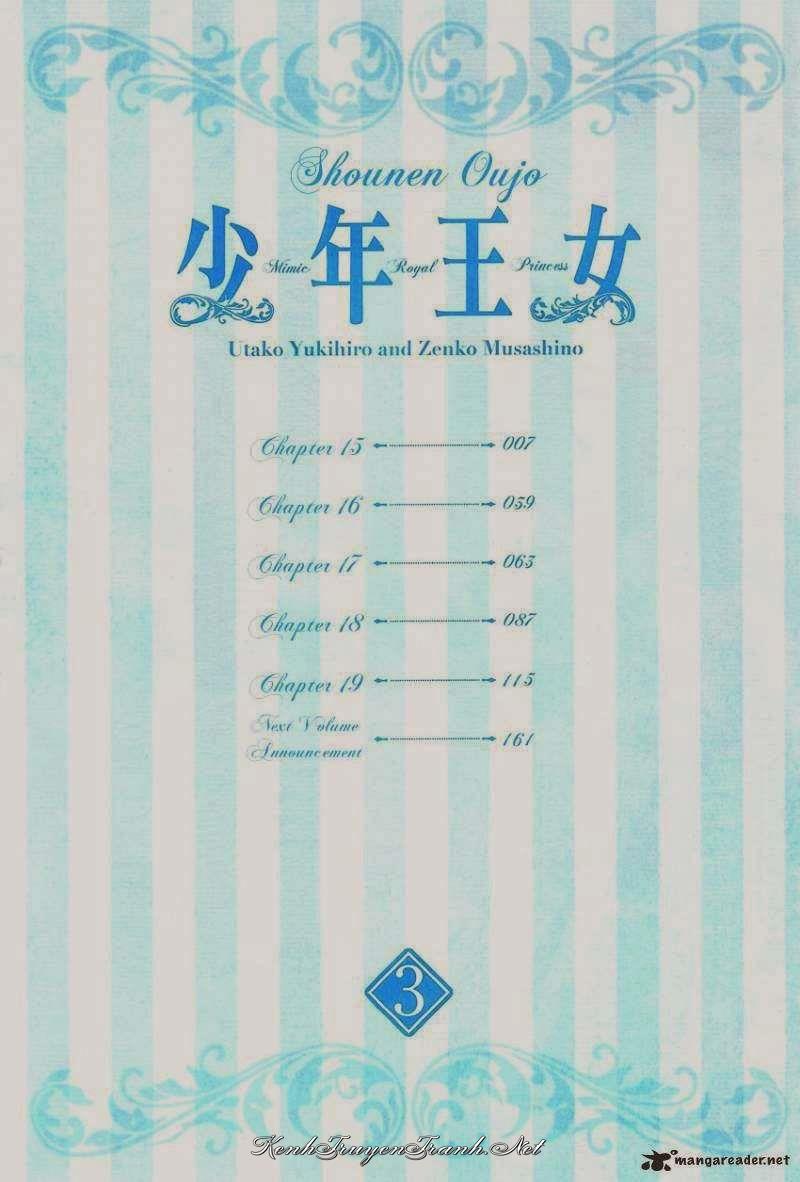 Shounen Oujo
少年王女
Mimic Royal Princess
Utako Yukihiro and Zenko Musashino
Chapter 15 007
Chapter 16 039
Chapter 17 063
Chapter 18 087
Chapter 19 115
Next Volume
Announcement 161
3
KenhTruyenTranh.Net
mangareader.net